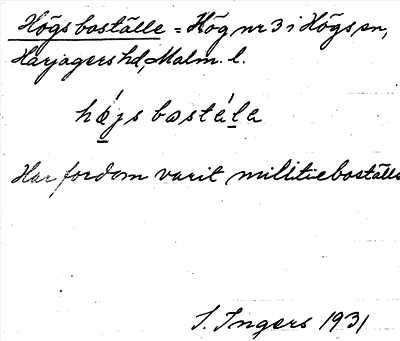 Högsboställe = Hög nr 3 i Högs sn,
Harjagers hd, Malm. l.
hǿjs bostá̱la
Har fordom varit militieboställe
I. Ingers 1931